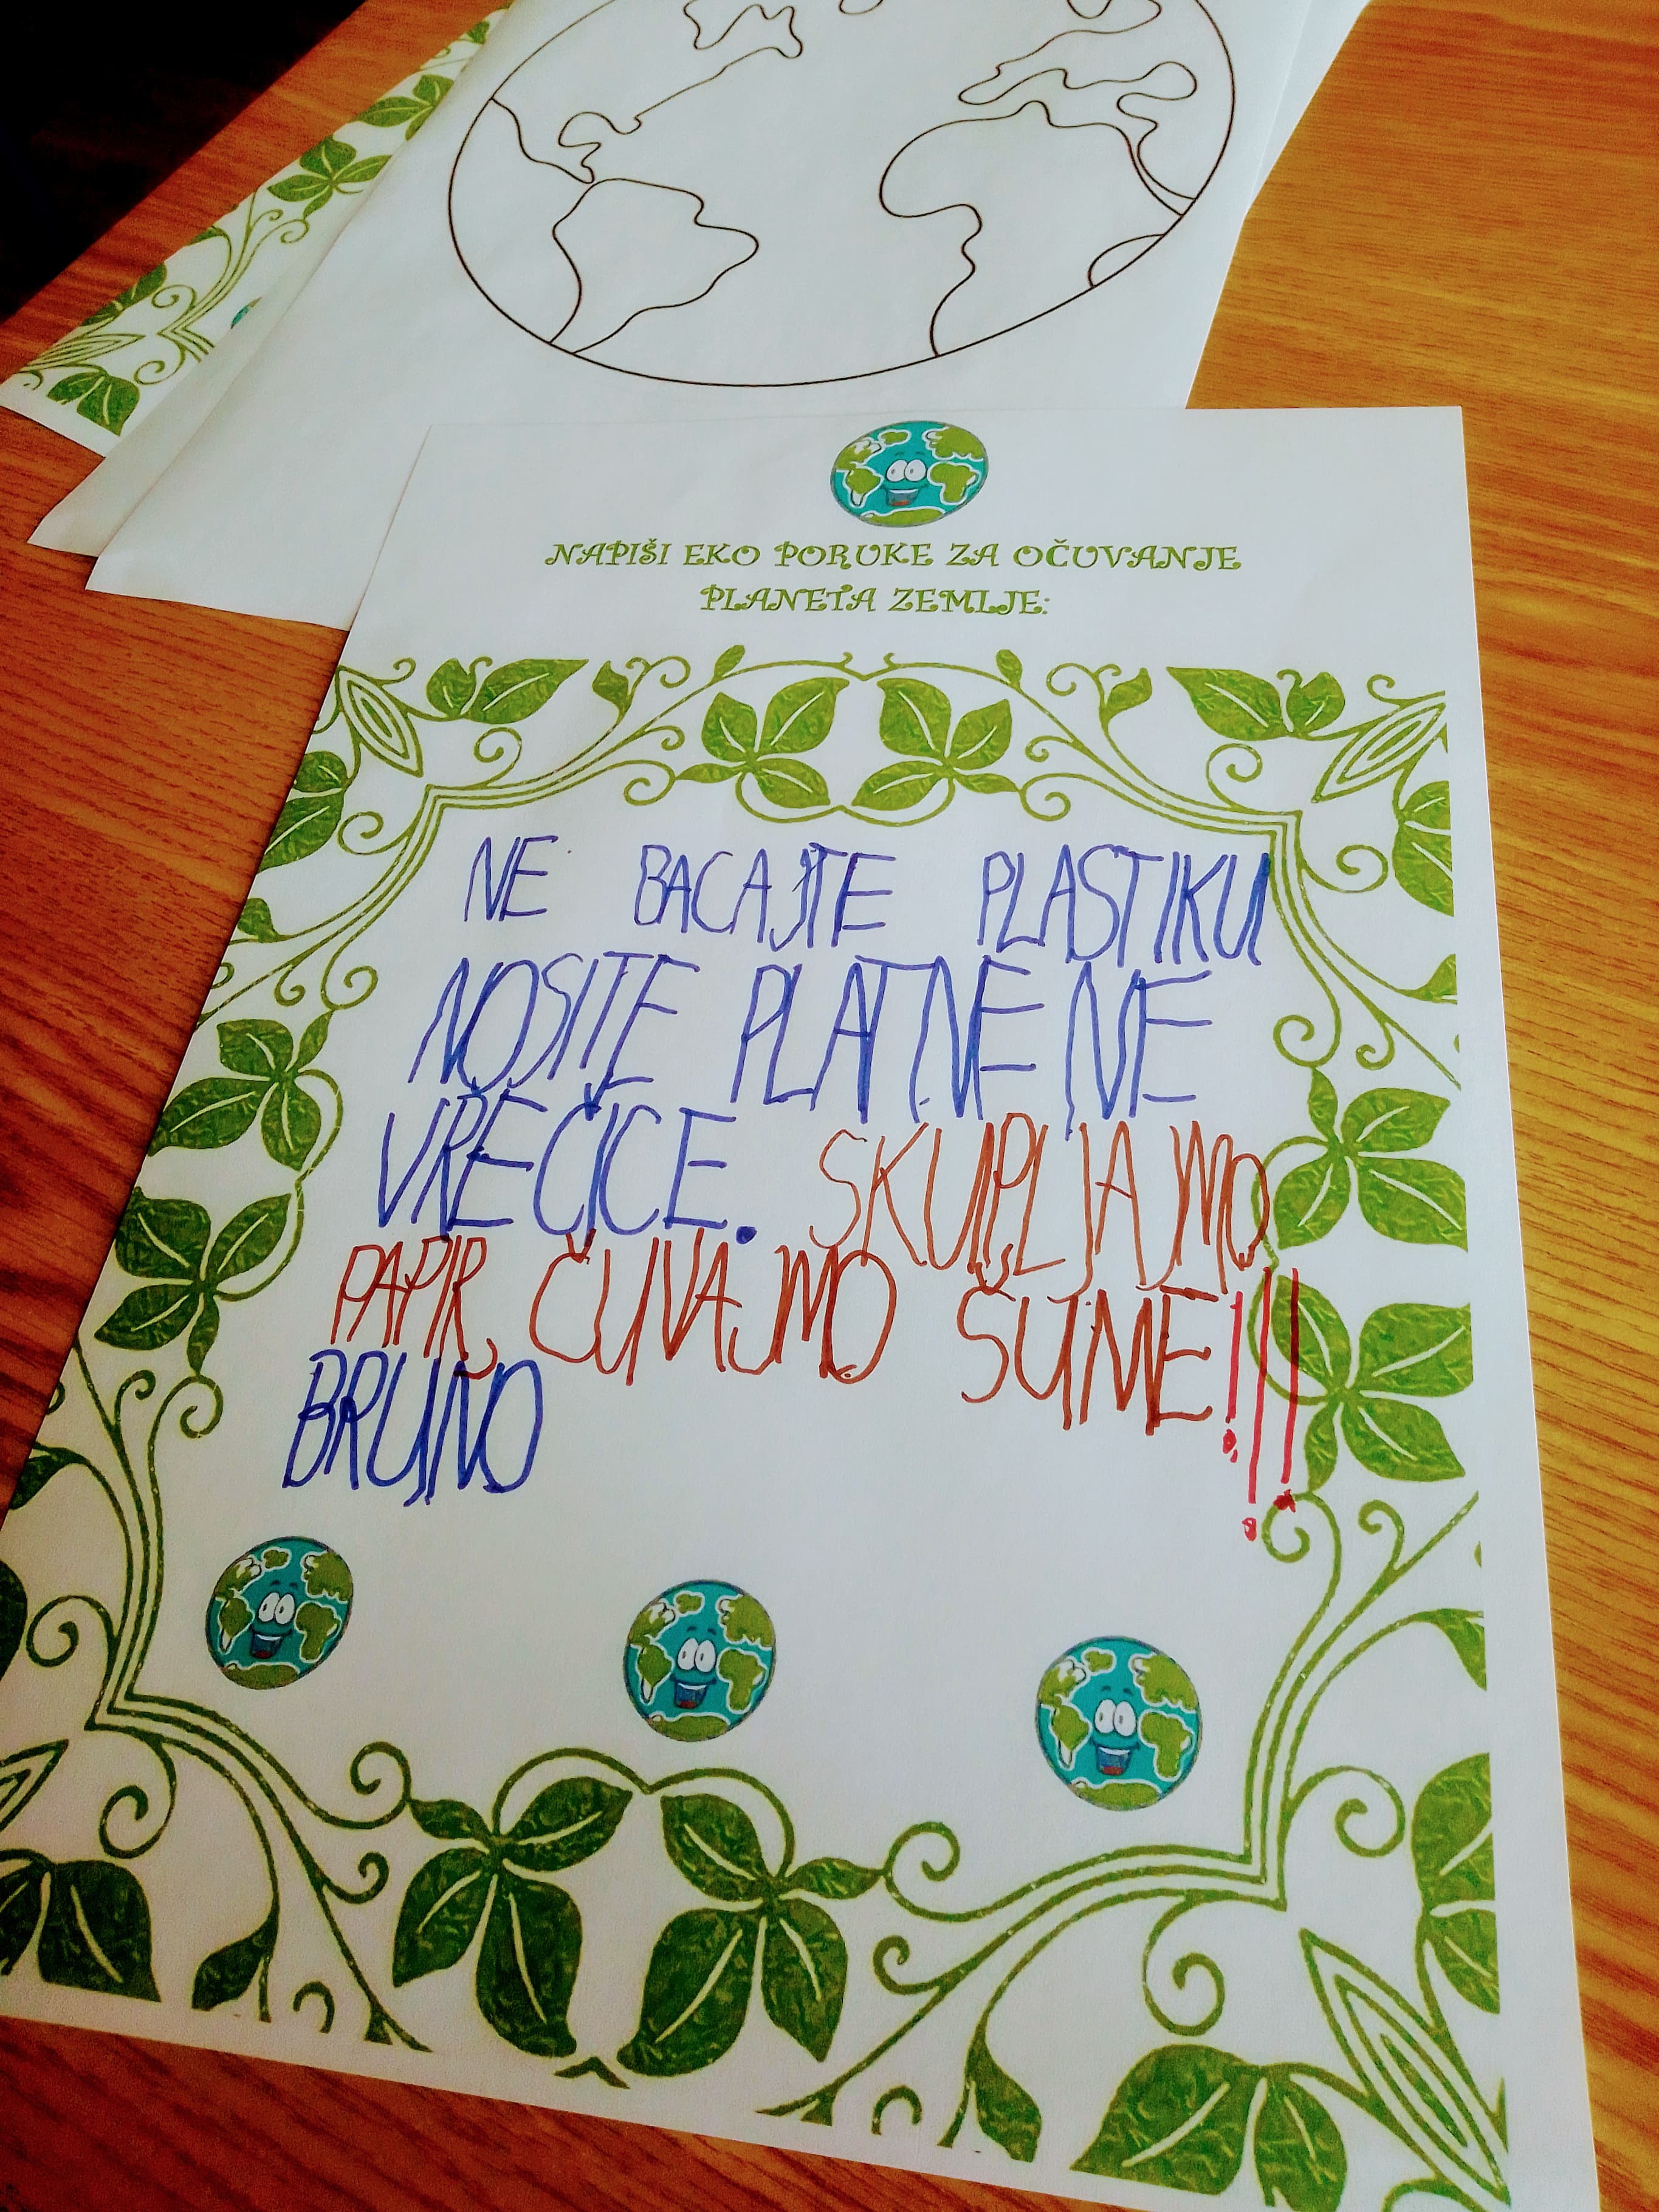 NAPIŠI EKO PORUKE ZA OČUVANJE
PLANETA ZEMLJE:
NE BACAJTE PLASTIKU
NOSITE PLATNENE
VREĆICE. SKUPLJAJMO
PAPIR, ČUVAJMO ŠUME!!!
BRUNO